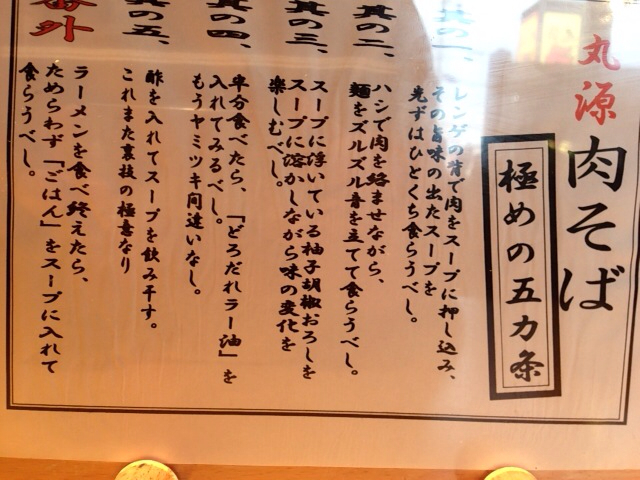 丸源
肉そば
極めの五カ条
其の一、
レンゲの背で肉をスープに押し込み、
その旨味の出たスープを
先ずはひとくち食らうべし。
其の二、
ハシで肉を絡ませながら、
麺をズルズル音を立てて食らうべし。
其の三、
スープに浮いている柚子胡椒おろしを
スープに溶かしながら味の変化を
楽しむべし。
其の四、
半分食べたら、「どろだれラー油」を
入れてみるべし。
もうヤミツキ間違いなし。
其の五、
酢を入れてスープを飲み干す。
これまた裏技の極意なり
番外
ラーメンを食べ終えたら、
ためらわず「ごはん」をスープに入れて
食らうべし。